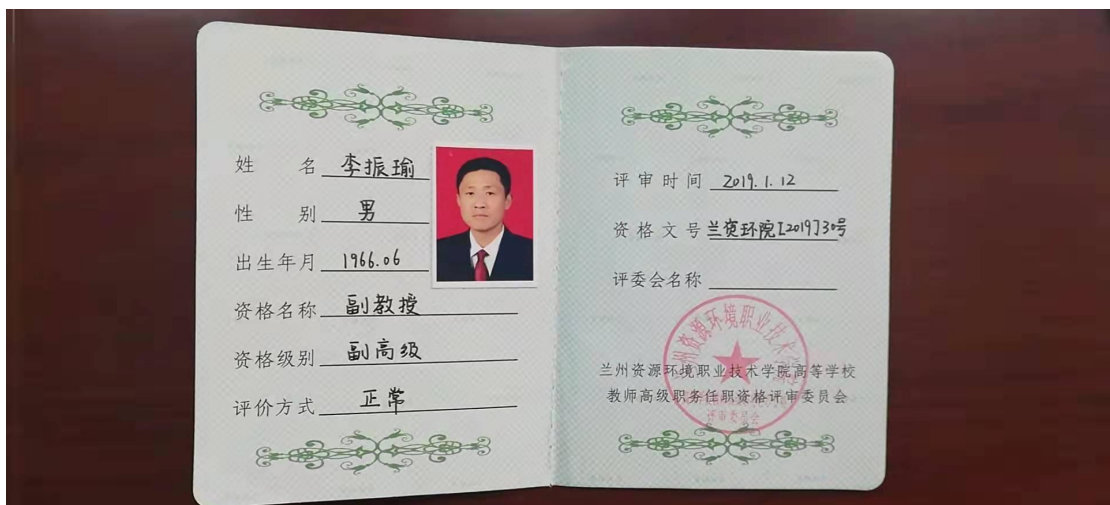 姓名 李振瑜
性别 男
出生年月 1966.06
资格名称 副教授
资格级别 副高级
评价方式 正常
评审时间 2019.1.12
资格文号 兰资环院[2019]30号
评委会名称
兰州资源环境职业技术学院高等学校
教师高级职务任职资格评审委员会
兰州资源环境职业技术学院
评审委员会